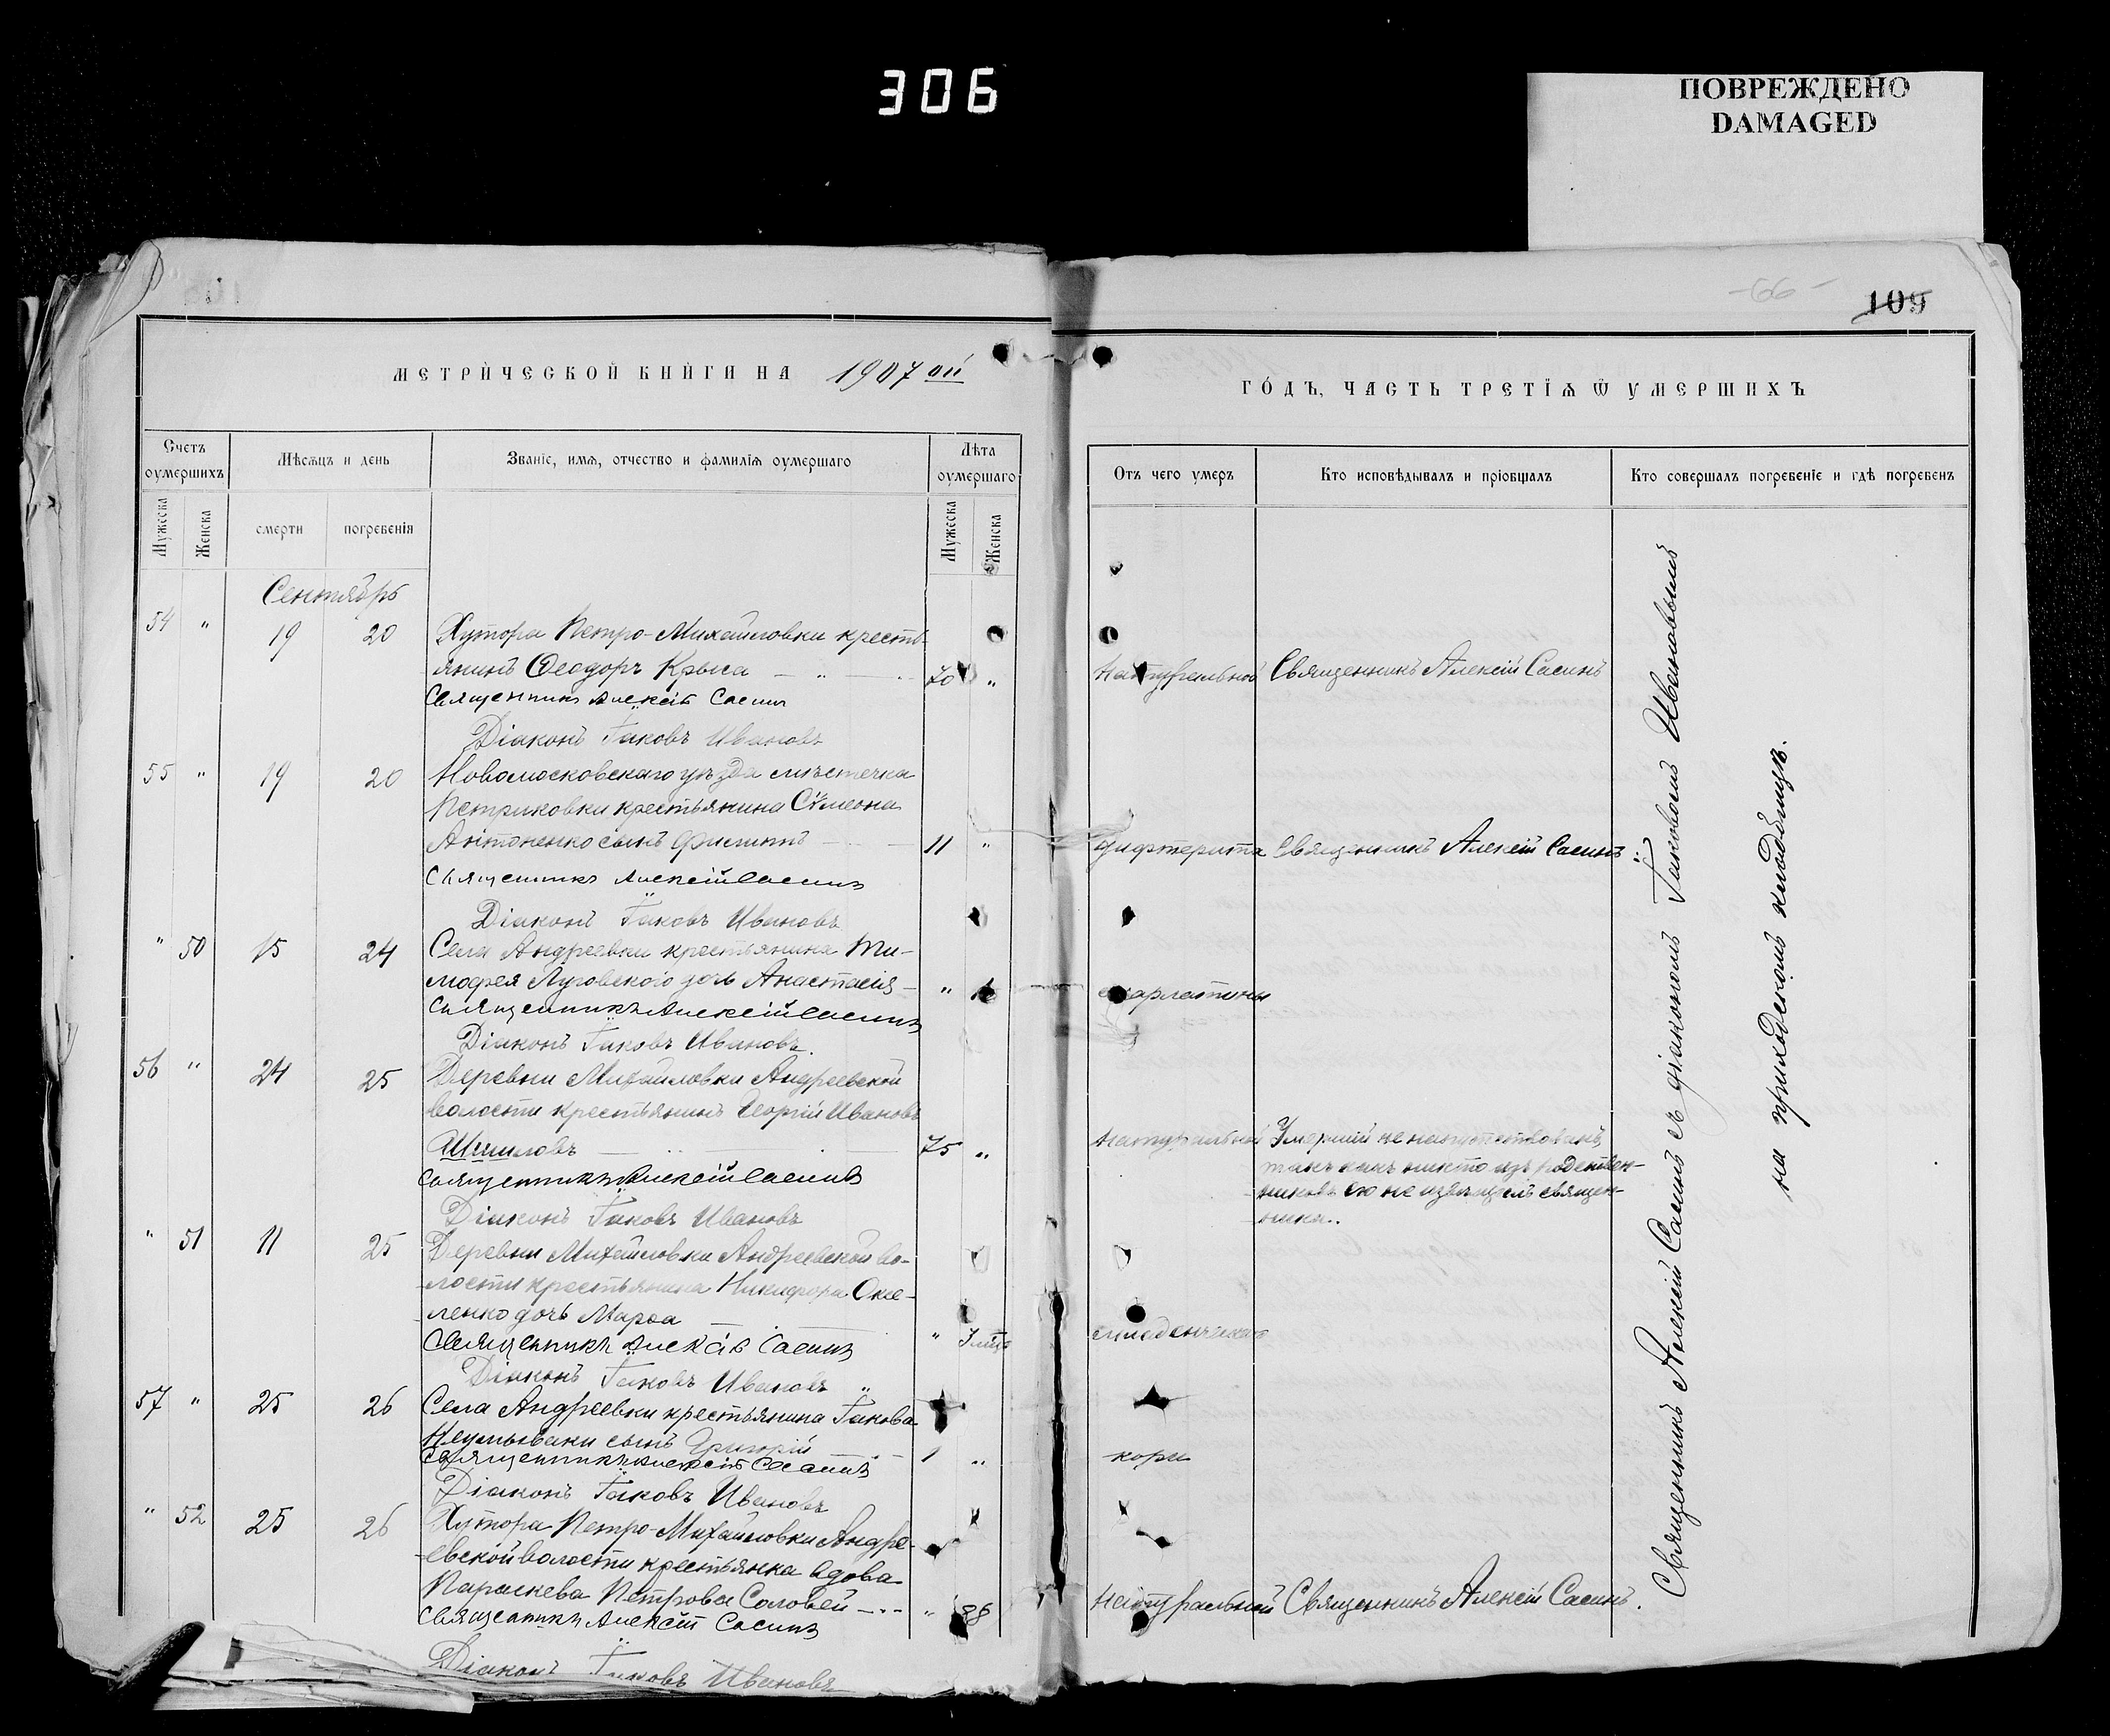 306
ПОВРЕЖДЕНО
DAMAGED
-66-
109
МЕТРИЧЕСКОЙ КНИГИ НА 1907 ой
ГОДЪ, ЧАСТЬ ТРЕТІѦ Ѿ УМЕРШИХЪ
Счетъ оумершихъ
Мѣсяцъ и день
Званіе, имя, отчество и фамилія оумершаго
Лѣта оумершаго
Отъ чего умеръ
Кто исповѣдывалъ и пріобщалъ
Кто совершалъ погребеніе и гдѣ погребенъ
Мужеска
Женска
смерти
погребенія
Мужеска
Женска
Сентябрь
54 " 19 20 Хутора Петро-Михайловки кресть-
янинъ Ѳеодоръ Крыса 70 " натуральной Священникъ Алексій Сасинъ
Священникъ Алексій Сасинъ
Діаконъ Іаковъ Ивановъ
55 " 19 20 Новомосковскаго уѣзда мѣстечка
Петриковки крестьянина Сѵмеона
Антоненко сынъ Филиппъ 11 " дифтерита Священникъ Алексій Сасинъ
Священникъ Алексій Сасинъ
Діаконъ Іаковъ Ивановъ
" 50 15 24 Села Андреевки крестьянина Ти-
мофея Луговского дочь Анастасія " скарлатины
Священникъ Алексій Сасинъ
Діаконъ Іаковъ Ивановъ.
56 " 24 25 Деревни Михайловки Андреевской
волости крестьянинъ Георгій Ивановъ
Шишловъ 75 " натуральной Умершій не напутствованъ,
такъ какъ никто изъ родствен-
никовъ его не извѣщалъ священ-
ника.
Священникъ Алексій Сасинъ
Діаконъ Іаковъ Ивановъ
" 51 11 25 Деревни Михайловки Андреевской во-
лости крестьянина Никифора Оме-
ленко дочь Марѳа
Священникъ Алексій Сасинъ "
Діаконъ Іаковъ Ивановъ
57 " 25 26 Села Андреевки крестьянина Іакова
сынъ Григорій 1 " кори
Священникъ Алексій Сасинъ
Діаконъ Іаковъ Ивановъ
" 52 25 26 Хутора Петро-Михайловки Андре-
евской волости крестьянка вдова
Параскева Петрова Соловей " 88 натуральной Священникъ Алексій Сасинъ.
Священникъ Алексій Сасинъ
Діаконъ Іаковъ Ивановъ
Священникъ Алексій Сасинъ съ діакономъ Іаковомъ Ивановымъ
на приходскомъ кладбищѣ.